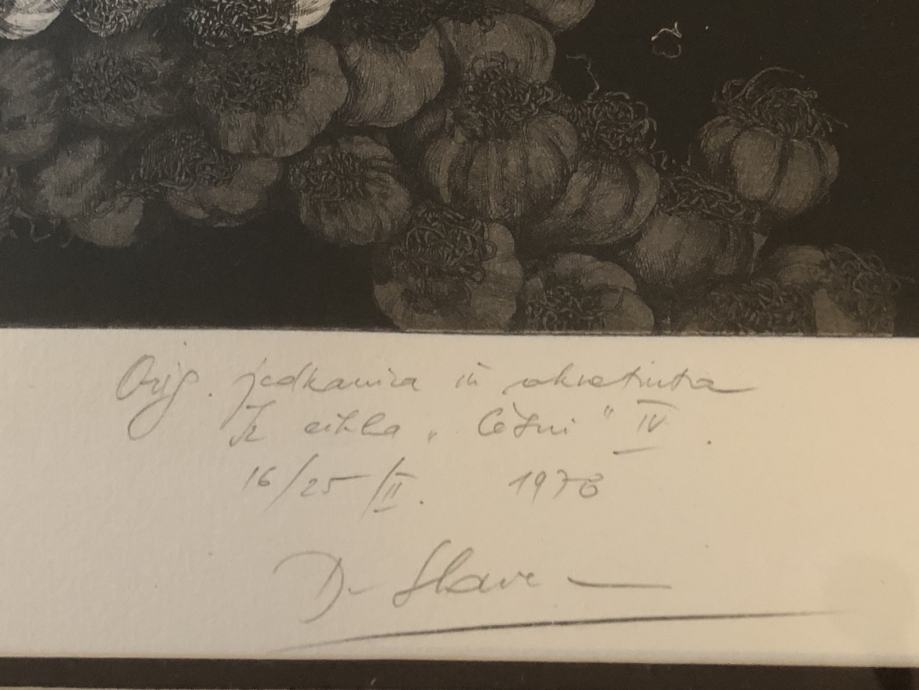 Orig. jedkanica in akvatinta
Iz cikla „Česni" IV.
16/25/II. 1978
D. Slave